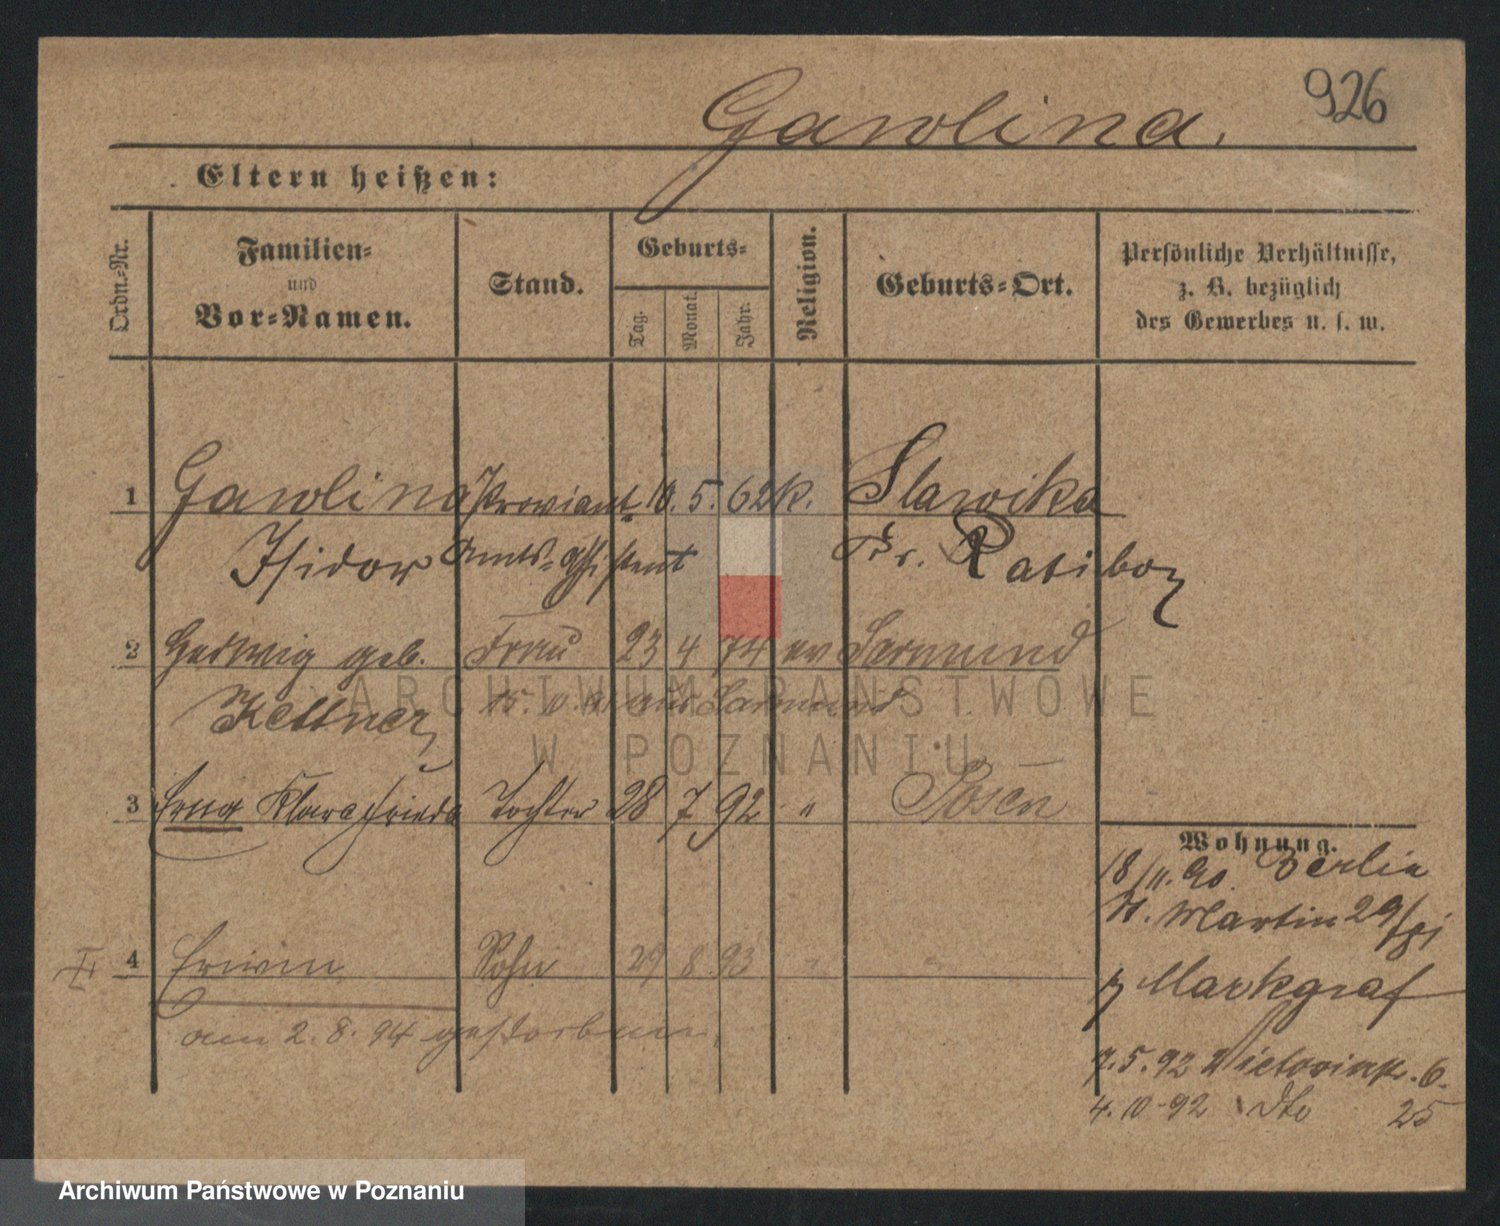 926
Gawlina.
Eltern heißen:
Ordn.-Nr.
Familien-
und
Vor-Namen.
Stand.
Geburts-
Tag.
Monat.
Jahr.
Religion.
Geburts-Ort.
Persönliche Verhältnisse,
z. B. bezüglich
des Gewerbes u. s. w.
1 Gawlina Proviant- 10. 5. 62 k. Slawika
Isidor Amts-Assistent Kr. Ratibor
2 Hedwig geb. Frau 23 4 74 ev Sarmund
Kettner aus Sarmund
3 Erna Klara Frieda Tochter 28 7 92 " Posen
Wohnung.
18/11. 90. Berlin
St. Martin 29/
4 Erwin Sohn 29 8 93 " "
b Markgraf
am 2. 8. 94 gestorben.
7. 5. 92 Victoriastr. 6.
4. 10 - 92 dto 25
ARCHIWUM PAŃSTWOWE
W POZNANIU
Archiwum Państwowe w Poznaniu